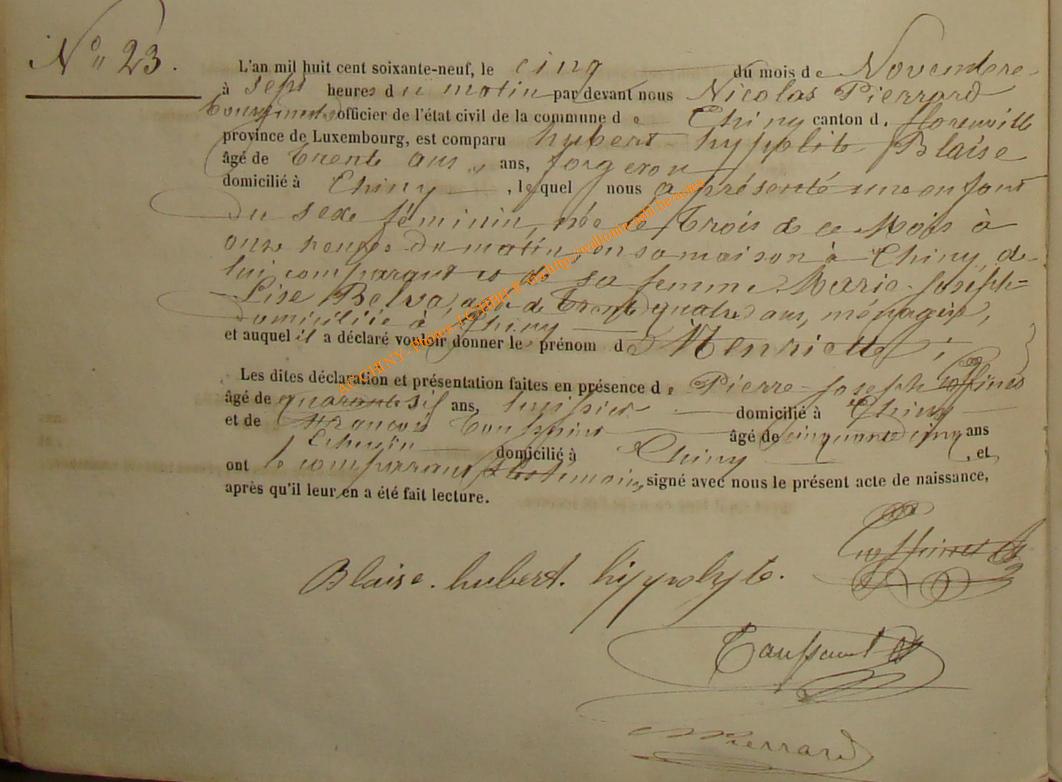 N° 23.
L'an mil huit cent soixante-neuf, le cinq du mois de Novembre
à sept heures du matin par devant nous Nicolas Pierrard
Bourgmestre officier de l'état civil de la commune de Chiny canton d. florenville
province de Luxembourg, est comparu hubert hyppolite Blaise
âgé de trente ans, ans, forgeron
domicilié à Chiny, lequel nous a présenté une enfant
du sexe féminin, née le trois de ce Mois à
onze heures du matin, en sa maison à Chiny, de
lui comparant et de sa femme Marie-Joseph=
Lise agée de trente quatre ans, ménagère,
domiciliée à Chiny
et auquel il a déclaré vouloir donner le prénom de Henriette;
Les dites déclaration et présentation faites en présence de Pierre-Joseph
âgé de quarante six ans, huissier domicilié à Chiny
et de François Toussaint âgé de cinquante cinq ans
domicilié à Chiny, et
ont le comparant signé avec nous le présent acte de naissance,
après qu'il leur en a été fait lecture.
Blaise. hubert. hyppolyte.
Toussaint
Pierrard